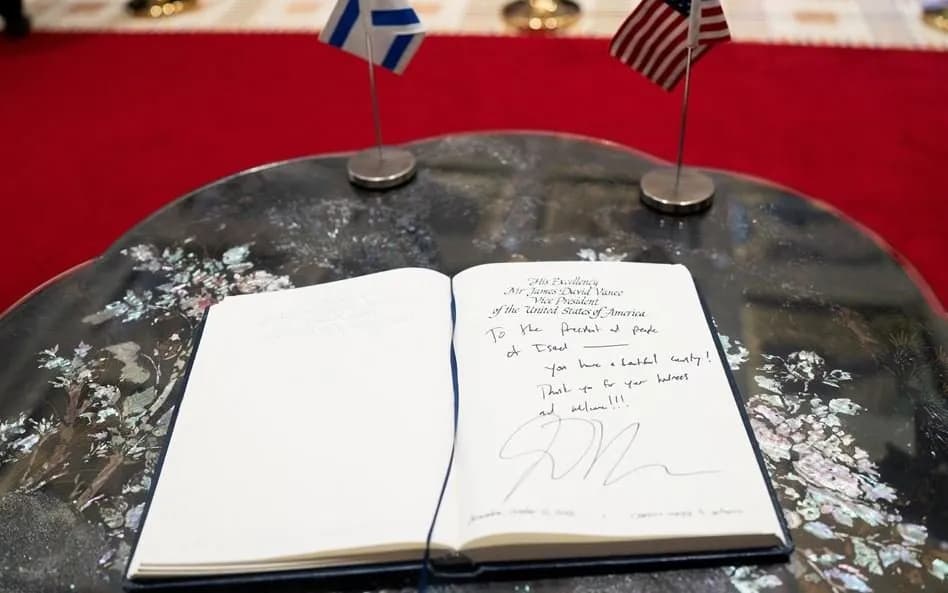 His Excellency
Mr James David Vance
Vice President
of the United States of America
To the President and people
of Israel ——
you have a beautiful country!
Thank you for your kindness
and welcome!!!